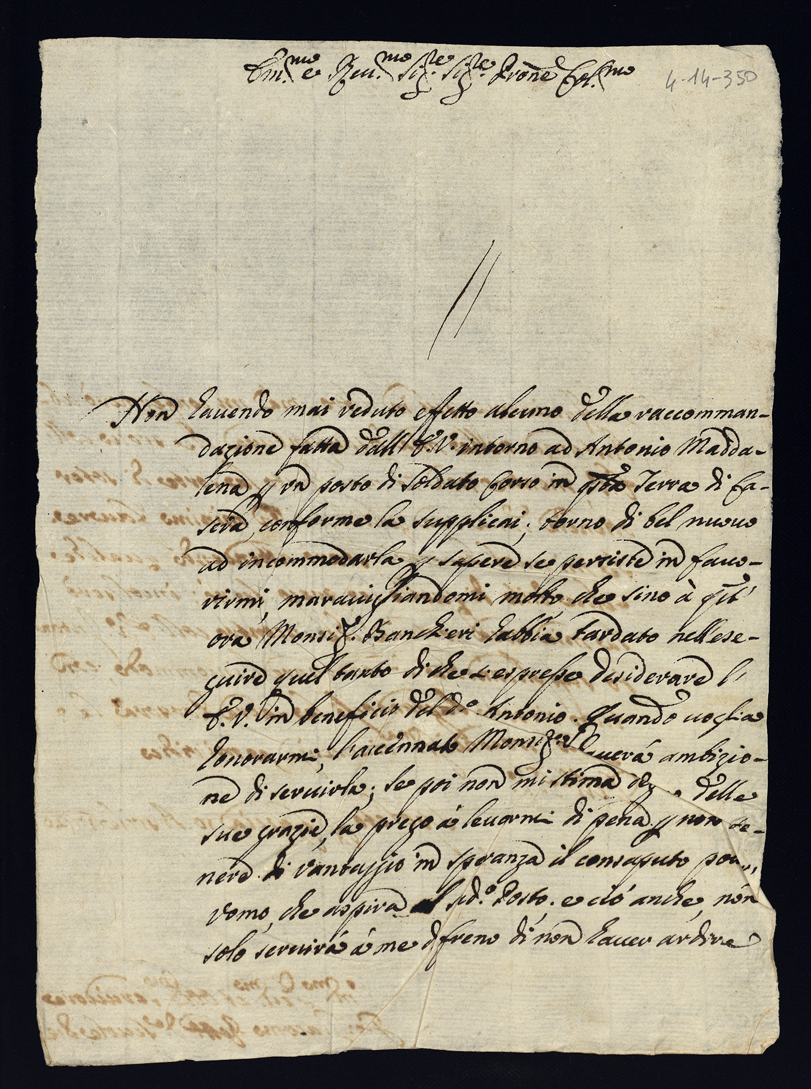 Em.mo e Rev.mo Sig.re Sig.re Prone Col.mo
4-14-350
Non havendo mai veduto effetto alcuno della raccomman-
dazione fatta dall' E.V. intorno ad Antonio Madda-
lena p un posto di soldato Corso in qsta Terra di Ca-
scia, conforme la supplicai; torno di bel nuovo
ad incommodarla p sapere se persiste in favo-
rirmi, maravigliandomi molto che sino à qst'
ora Monsig.r Banchieri habbia tardato nell'ese-
guire quel tanto di che s'espresse desiderare l'
E.V. in beneficio del d.o Antonio. Quando voglia
honorarmi, l'accennato Monsig.r haverà ambizio-
ne di servirla; se poi non mi stima delle
sue grazie, la prego à levarmi di pena p non te-
nere di vantaggio in speranza il consaputo pover'
uomo, che aspira al sud.o Posto. e ciò anche non
solo servirà à me di freno di non haver ardire